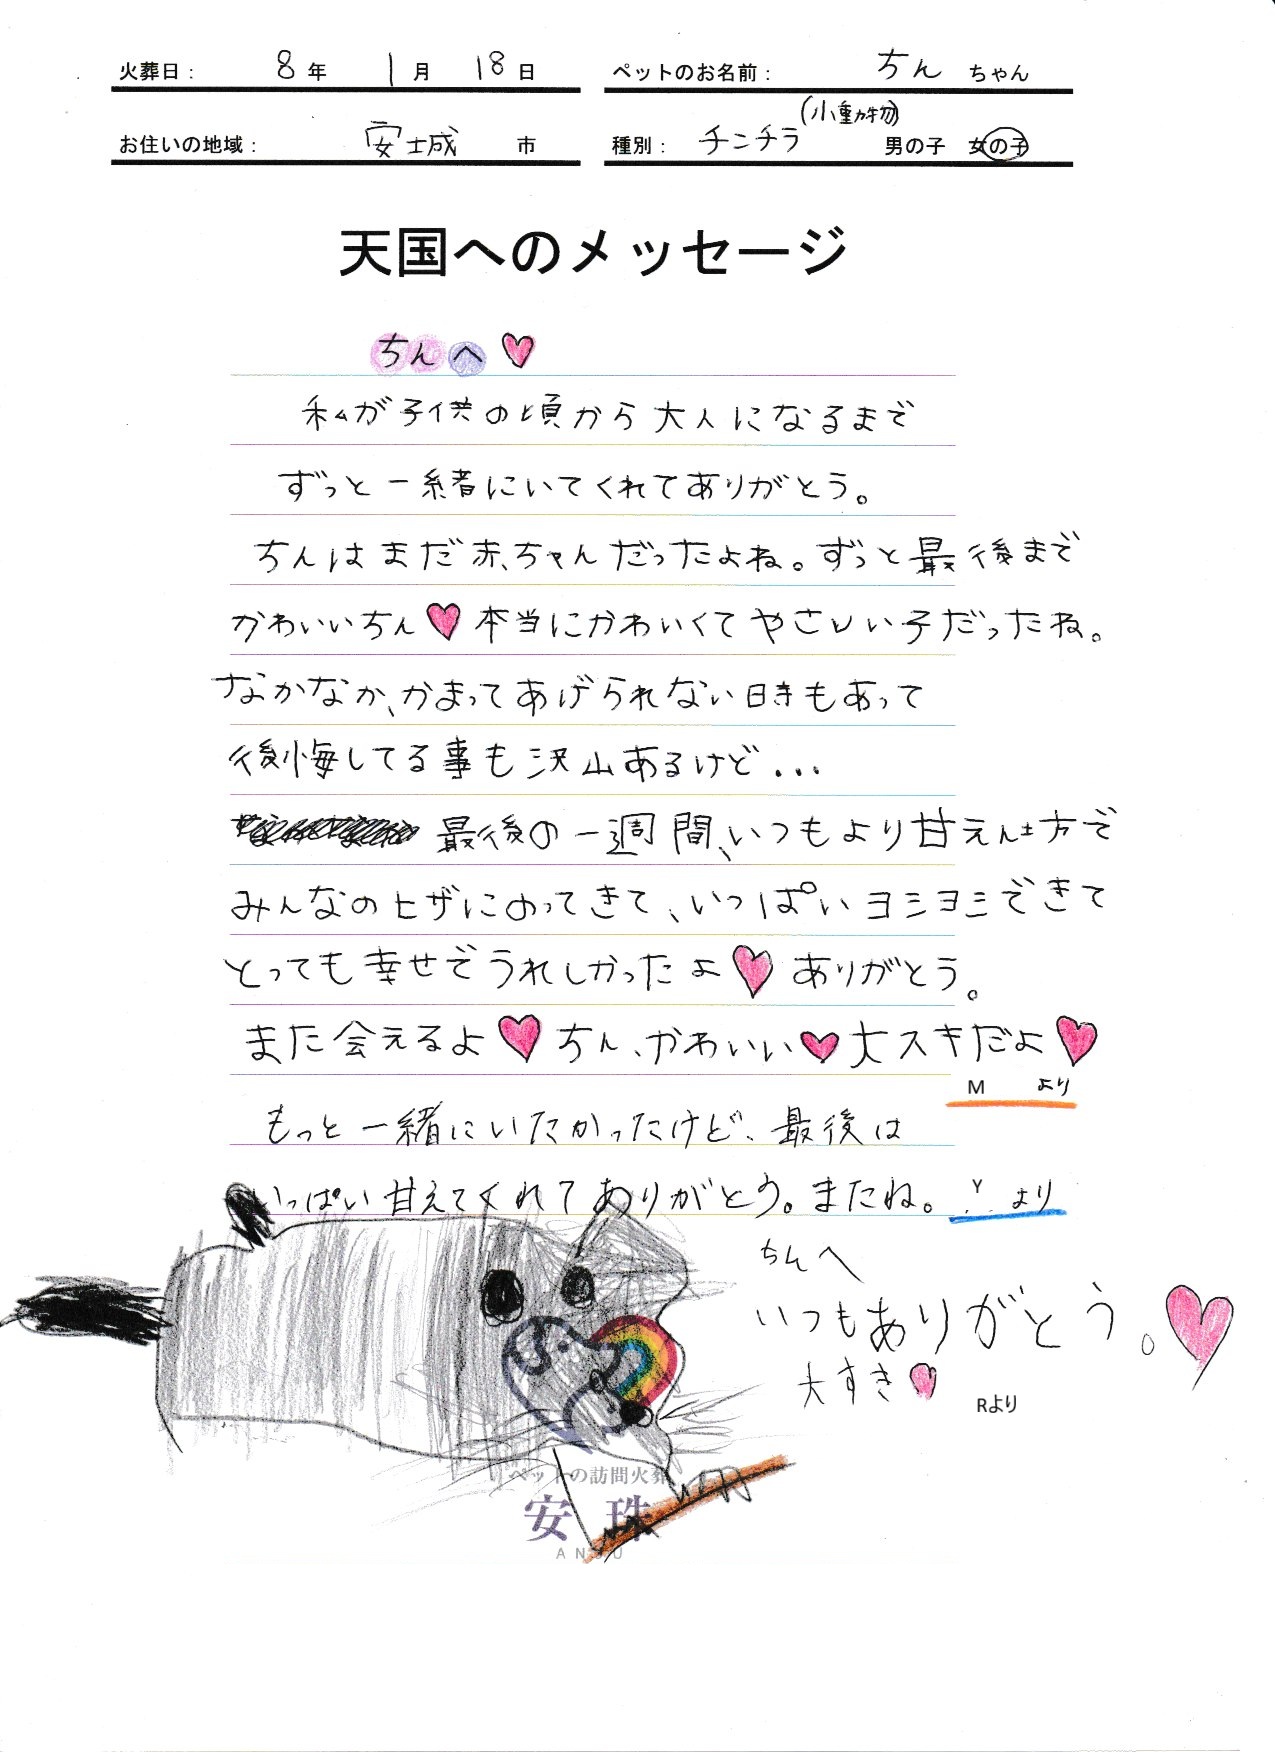 火葬日: 8年 1月 18日
ペットのお名前: ちん ちゃん
お住いの地域: 安城 市
種別: チンチラ (小動物) 男の子 女の子
天国へのメッセージ
ちんへ♥
私が子供の頃から大人になるまで
ずっと一緒にいてくれてありがとう。
ちんはまだ赤ちゃんだったよね。ずっと最後まで
かわいいちん♥本当にかわいくてやさしい子だったね。
なかなか、かまってあげられない時もあって
後悔してる事も沢山あるけど...
最後の一週間、いつもより甘えん坊で
みんなのヒザにのってきて、いっぱいヨシヨシできて
とっても幸せでうれしかったよ♥ありがとう。
また会えるよ♥ちん、かわいい♥大スキだよ♥
M より
もっと一緒にいたかったけど、最後は
いっぱい甘えてくれてありがとう。またね。 Y より
ちんへ
いつもありがとう。♥
大すき♥
Rより
ペットの訪問火葬
安珠
ANJU